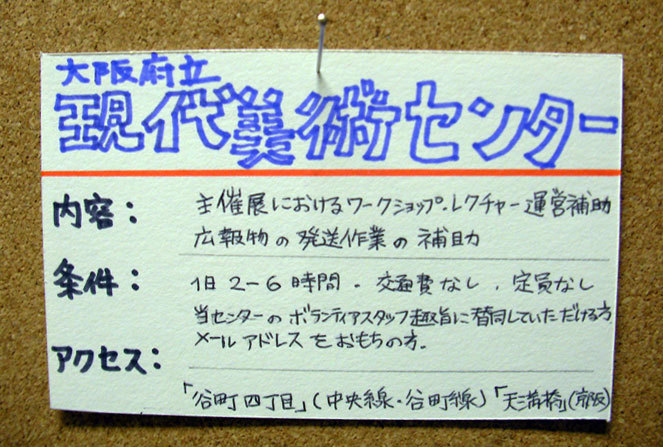 大阪府立
現代美術センター
内容： 主催展におけるワークショップ・レクチャー運営補助
広報物の発送作業の補助
条件： 1日2-6時間・交通費なし、定員なし
当センターのボランティアスタッフ趣旨に賛同していただける方
メールアドレスをおもちの方.
アクセス：
「谷町四丁目」(中央線・谷町線)「天満橋」(京阪)